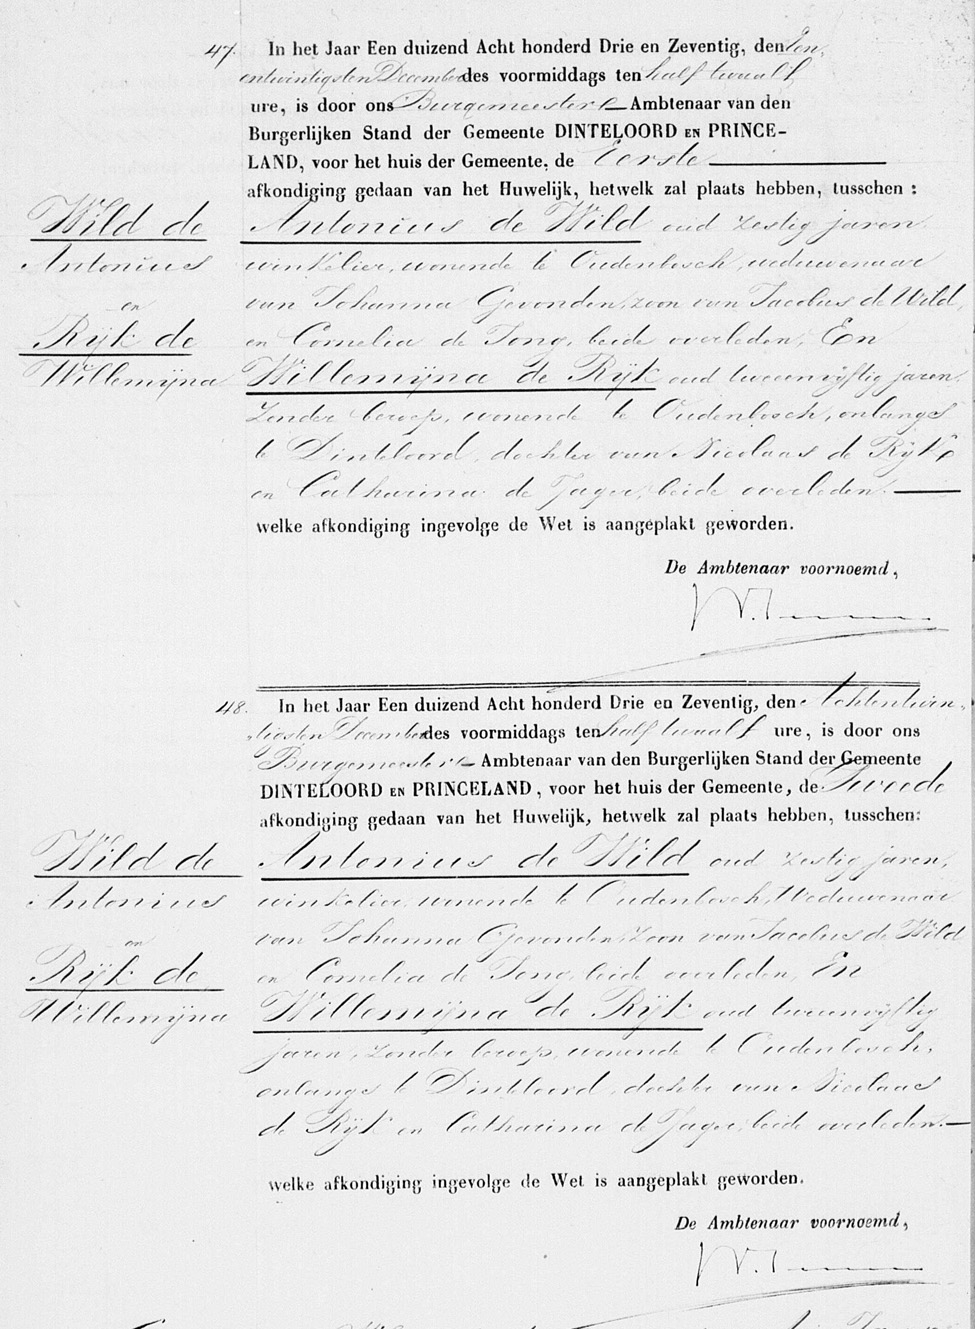 47. In het Jaar Een duizend Acht honderd Drie en Zeventig, den Een
entwintigsten December des voormiddags ten half twaalf
ure, is door ons Burgemeester Ambtenaar van den
Burgerlijken Stand der Gemeente DINTELOORD EN PRINCE-
LAND, voor het huis der Gemeente, de Eerste
afkondiging gedaan van het Huwelijk, hetwelk zal plaats hebben, tusschen :
Wild de
Antonius
en
Rijk de
Willemijna
Antonius de Wild oud zestig jaren
winkelier, wonende te Oudenbosch, weduwenaar
van Johanna Gevonden, zoon van Jacobus de Wild,
en Cornelia de Jong, beide overleden, En
Willemijna de Rijk oud tweeenvijftig jaren,
zonder beroep, wonende te Oudenbosch, onlangs
te Dinteloord, dochter van Nicolaas de Rijk
en Catharina de Jager, beide overleden.
welke afkondiging ingevolge de Wet is aangeplakt geworden.
De Ambtenaar voornoemd,
48. In het Jaar Een duizend Acht honderd Drie en Zeventig, den Achtentwin-
tigsten December des voormiddags ten half twaalf ure, is door ons
Burgemeester Ambtenaar van den Burgerlijken Stand der Gemeente
DINTELOORD EN PRINCELAND, voor het huis der Gemeente, de Tweede
afkondiging gedaan van het Huwelijk, hetwelk zal plaats hebben, tusschen:
Wild de
Antonius
en
Rijk de
Willemijna
Antonius de Wild oud zestig jaren,
winkelier, wonende te Oudenbosch, Weduwenaar
van Johanna Gevonden, zoon van Jacobus de Wild
en Cornelia de Jong, beide overleden, En
Willemijna de Rijk oud tweeenvijftig
jaren, zonder beroep, wonende te Oudenbosch,
onlangs te Dinteloord, dochter van Nicolaas
de Rijk en Catharina de Jager, beide overleden.
welke afkondiging ingevolge de Wet is aangeplakt geworden.
De Ambtenaar voornoemd,